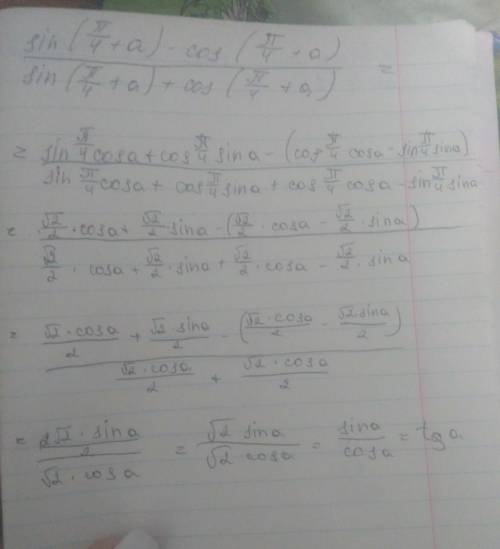 sin(π/4 + a) - cos(π/4 + a)
sin(π/4 + a) + cos(π/4 + a) =
= sin π/4 cosa + cos π/4 sina - (cos π/4 cosa - sin π/4 sina)
sin π/4 cosa + cos π/4 sina + cos π/4 cosa - sin π/4 sina
= √2/2 · cosa + √2/2 sina - (√2/2 · cosa - √2/2 · sina)
√2/2 · cosa + √2/2 · sina + √2/2 · cosa - √2/2 · sina
= √2 · cosa/2 + √2 · sina/2 - (√2 · cosa/2 - √2 sina/2)
√2 · cosa/2 + √2 · cosa/2
= 2√2 · sina/2 / √2 · cosa = √2 sina / √2 cosa = sina / cosa = tg a